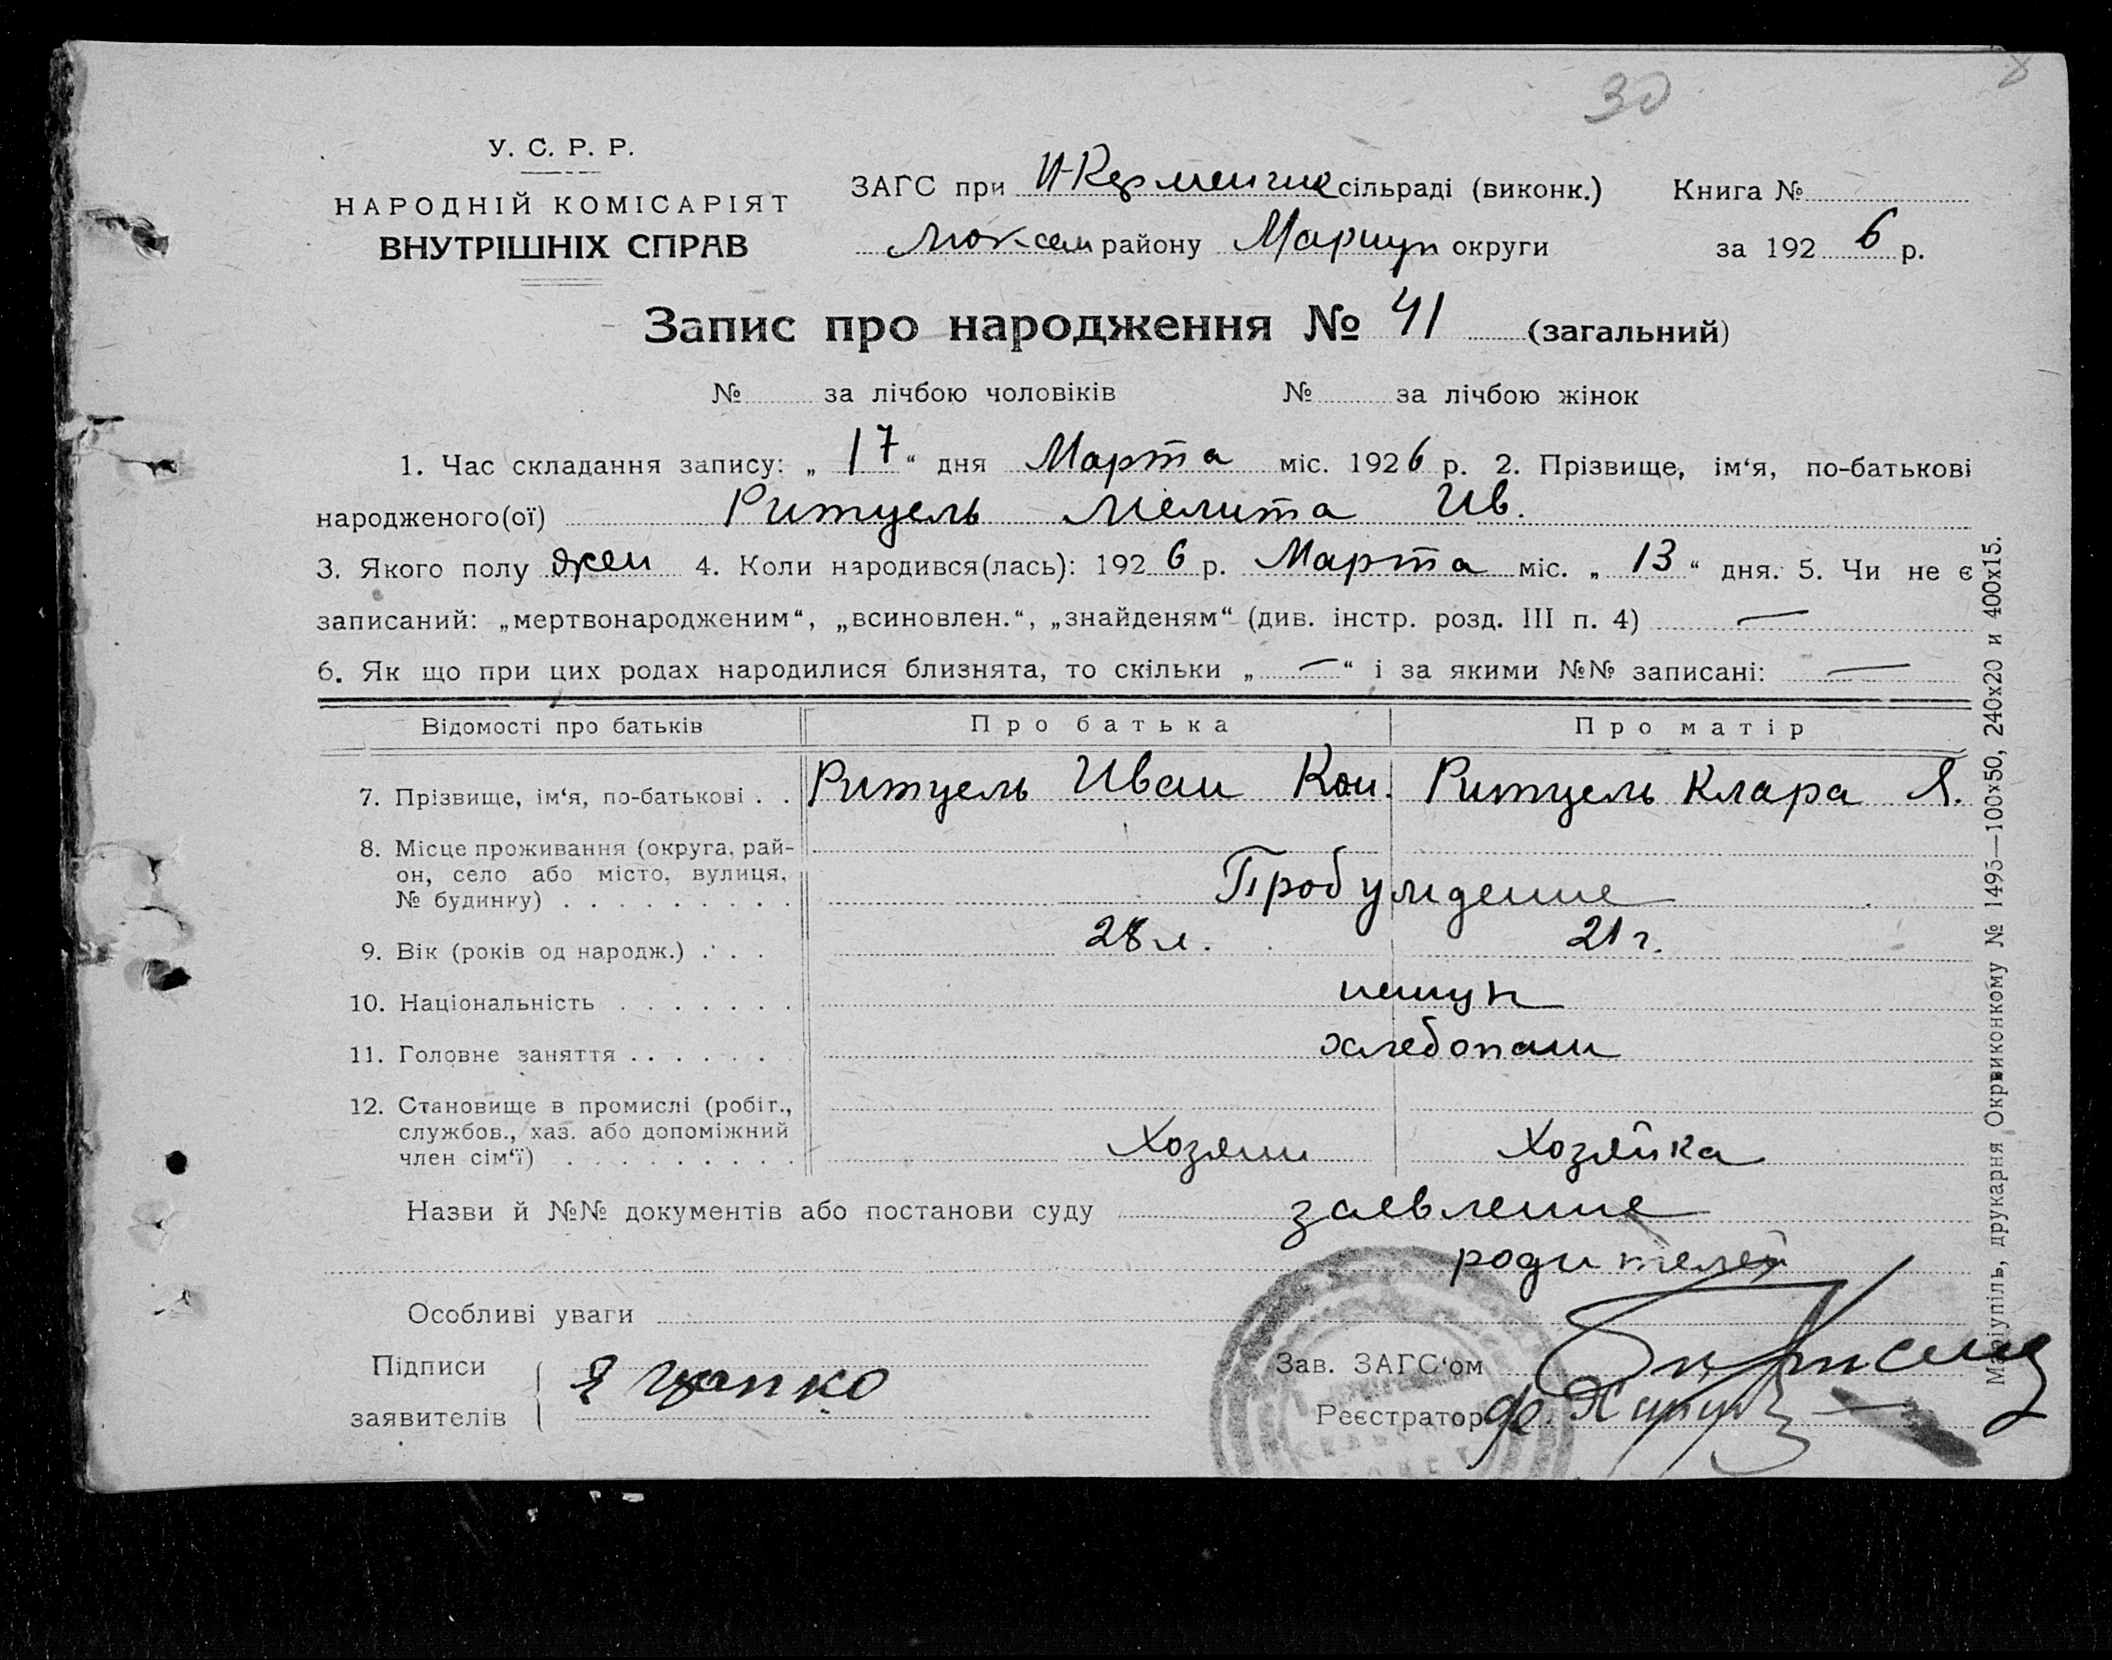 30
У. С. Р. Р.
НАРОДНІЙ КОМІСАРІЯТ
ВНУТРІШНІХ СПРАВ
ЗАГС при Н-Керменчик сільраді (виконк.) Книга №
району Мариуп округи за 192 6 р.
Запис про народження № 41 (загальний)
№ за лічбою чоловіків № за лічбою жінок
1. Час складання запису: „ 17 “ дня Марта міс. 192 6 р. 2. Прізвище, ім‘я, по-батькові
народженого(ої) Ритцель Мелита Ив.
3. Якого полу жен 4. Коли народився(лась): 192 6 р. Марта міс. „ 13 “ дня. 5. Чи не є
записаний: „мертвонародженим“, „всиновлен.“, „знайденям“ (див. інстр. розд. III п. 4) —
6. Як що при цих родах народилися близнята, то скільки „ — “ і за якими №№ записані: —
Відомості про батьків Про батька Про матір
7. Прізвище, ім‘я, по-батькові . . Ритцель Иван Кон. Ритцель Клара Я.
8. Місце проживання (округа, рай-
он, село або місто, вулиця,
№ будинку) . . . . . . . . . Пробуждение
9. Вік (років од народж.) . . . 28 л. 21 г.
10. Національність . . . . . . .
11. Головне заняття . . . . . . хлебопаш
12. Становище в промислі (робіт.,
службов., хаз. або допоміжний
член сім‘ї) . . . . . . . . . Хозяин Хозяйка
Назви й №№ документів або постанови суду заевление
родителей
Особливі уваги
Підписи
заявителів
Зав. ЗАГС‘ом
Реєстратор
Маріупіль, друкарня Окрвиконкому № 1495—100х50, 240х20 и 400х15.